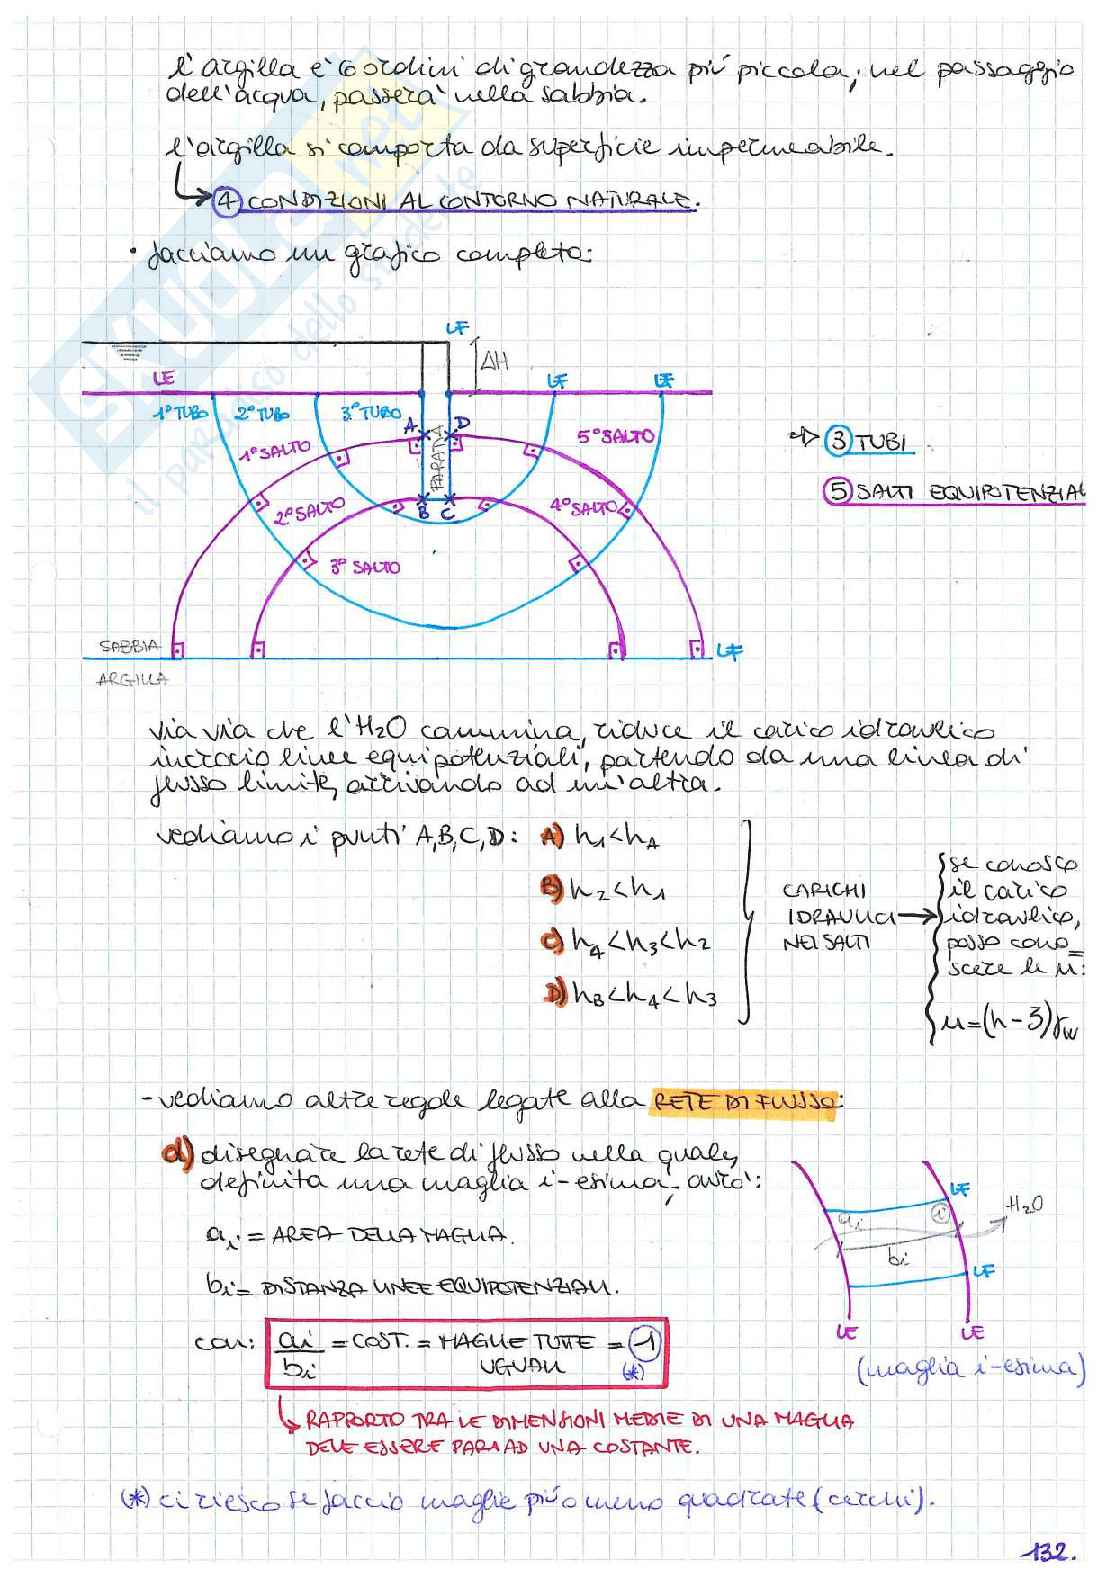 l'argilla è 6 ordini di grandezza più piccola; nel passaggio
dell'acqua, passerà nella sabbia.
l'argilla si comporta da superficie impermeabile.
4 CONDIZIONI AL CONTORNO NATURALE.
• facciamo un grafico completo:
LF
ΔH
LE
LF
LF
1° TUBO
2° TUBO
3° TUBO
A
D
PARATIA
5° SALTO
1° SALTO
2° SALTO
B
C
4° SALTO
3° SALTO
⇒ 3 TUBI
5 SALTI EQUIPOTENZIAL
SABBIA
ARGILLA
LF
via via che l'H2O cammina, riduce il carico idraulico
incrocio linee equipotenziali, partendo da una linea di
flusso limite, arrivando ad un'altra.
vediamo i punti A,B,C,D:
A) h1<hA
B) h2<h1
C) h4<h3<h2
D) hB<h4<h3
CARICHI
IDRAULICI
NEI SALTI
se conosco
il carico
idraulico,
posso cono=
scere le u:
u=(h-3)γw
- vediamo altre regole legate alla RETE DI FLUSSO:
d) disegnare la rete di flusso nella quale,
definita una maglia i-esima, avrò:
ai = AREA DELLA MAGLIA.
bi = DISTANZA LINEE EQUIPOTENZIALI.
con: ai/bi = COST. = MAGLIE TUTTE = 1
UGUALI (*)
RAPPORTO TRA LE DIMENSIONI MEDIE DI UNA MAGLIA
DEVE ESSERE PARI AD UNA COSTANTE.
LF
ai
i
H2O
bi
LF
LE
LE
(maglia i-esima)
(*) ci riesco se faccio maglie più o meno quadrate (cerchi).
132.
SKUOLA.net
il paradiso dello studente